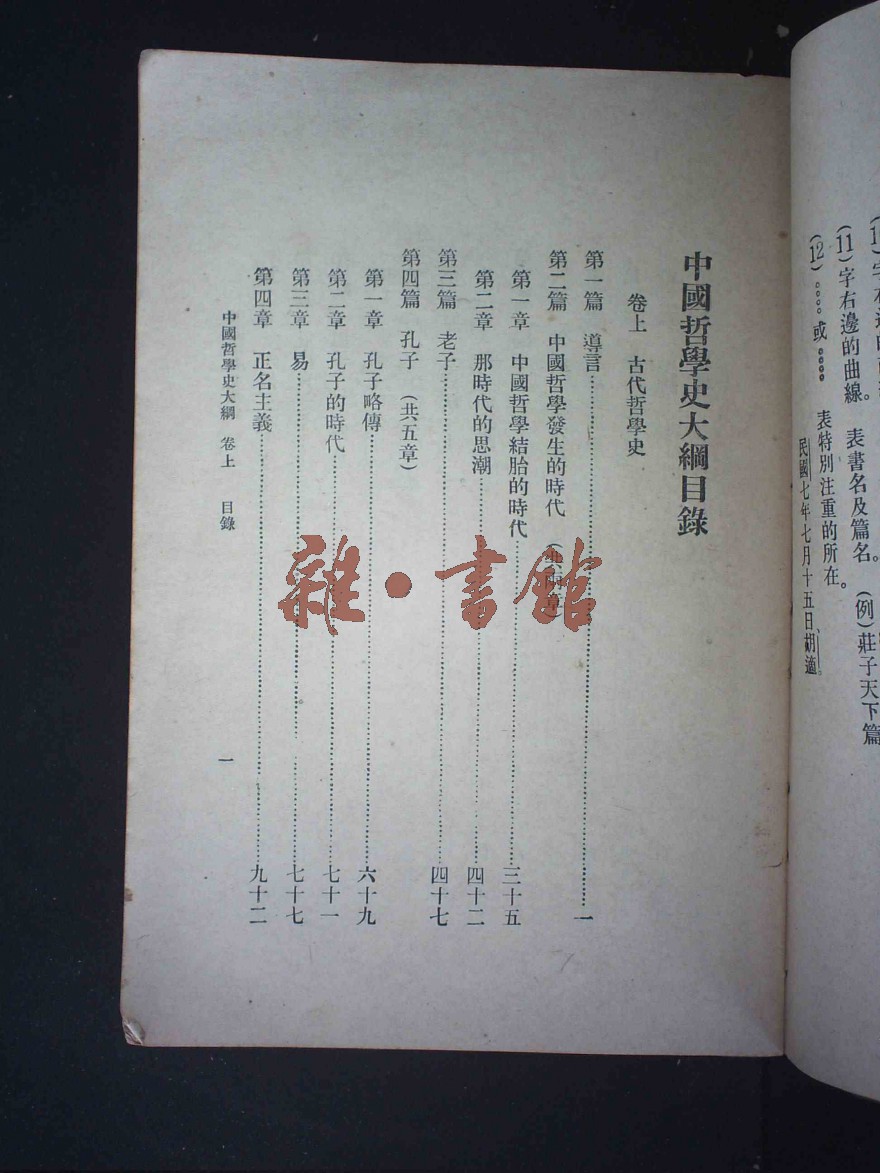 (11)字右邊的曲線。 表書名及篇名。 (例)莊子天下篇
(12)。。。。或。。。。 表特別注重的所在。
民國七年七月十五日、胡適。
中國哲學史大綱目錄
卷上 古代哲學史
第一篇 導言……一
第二篇 中國哲學發生的時代 (共兩章)
第一章 中國哲學結胎的時代……三十五
第二章 那時代的思潮……四十二
第三篇 老子……四十七
第四篇 孔子 (共五章)
第一章 孔子略傳……六十九
第二章 孔子的時代……七十一
第三章 易……七十七
第四章 正名主義……九十二
中國哲學史大綱 卷上 目錄 一
雜·書館